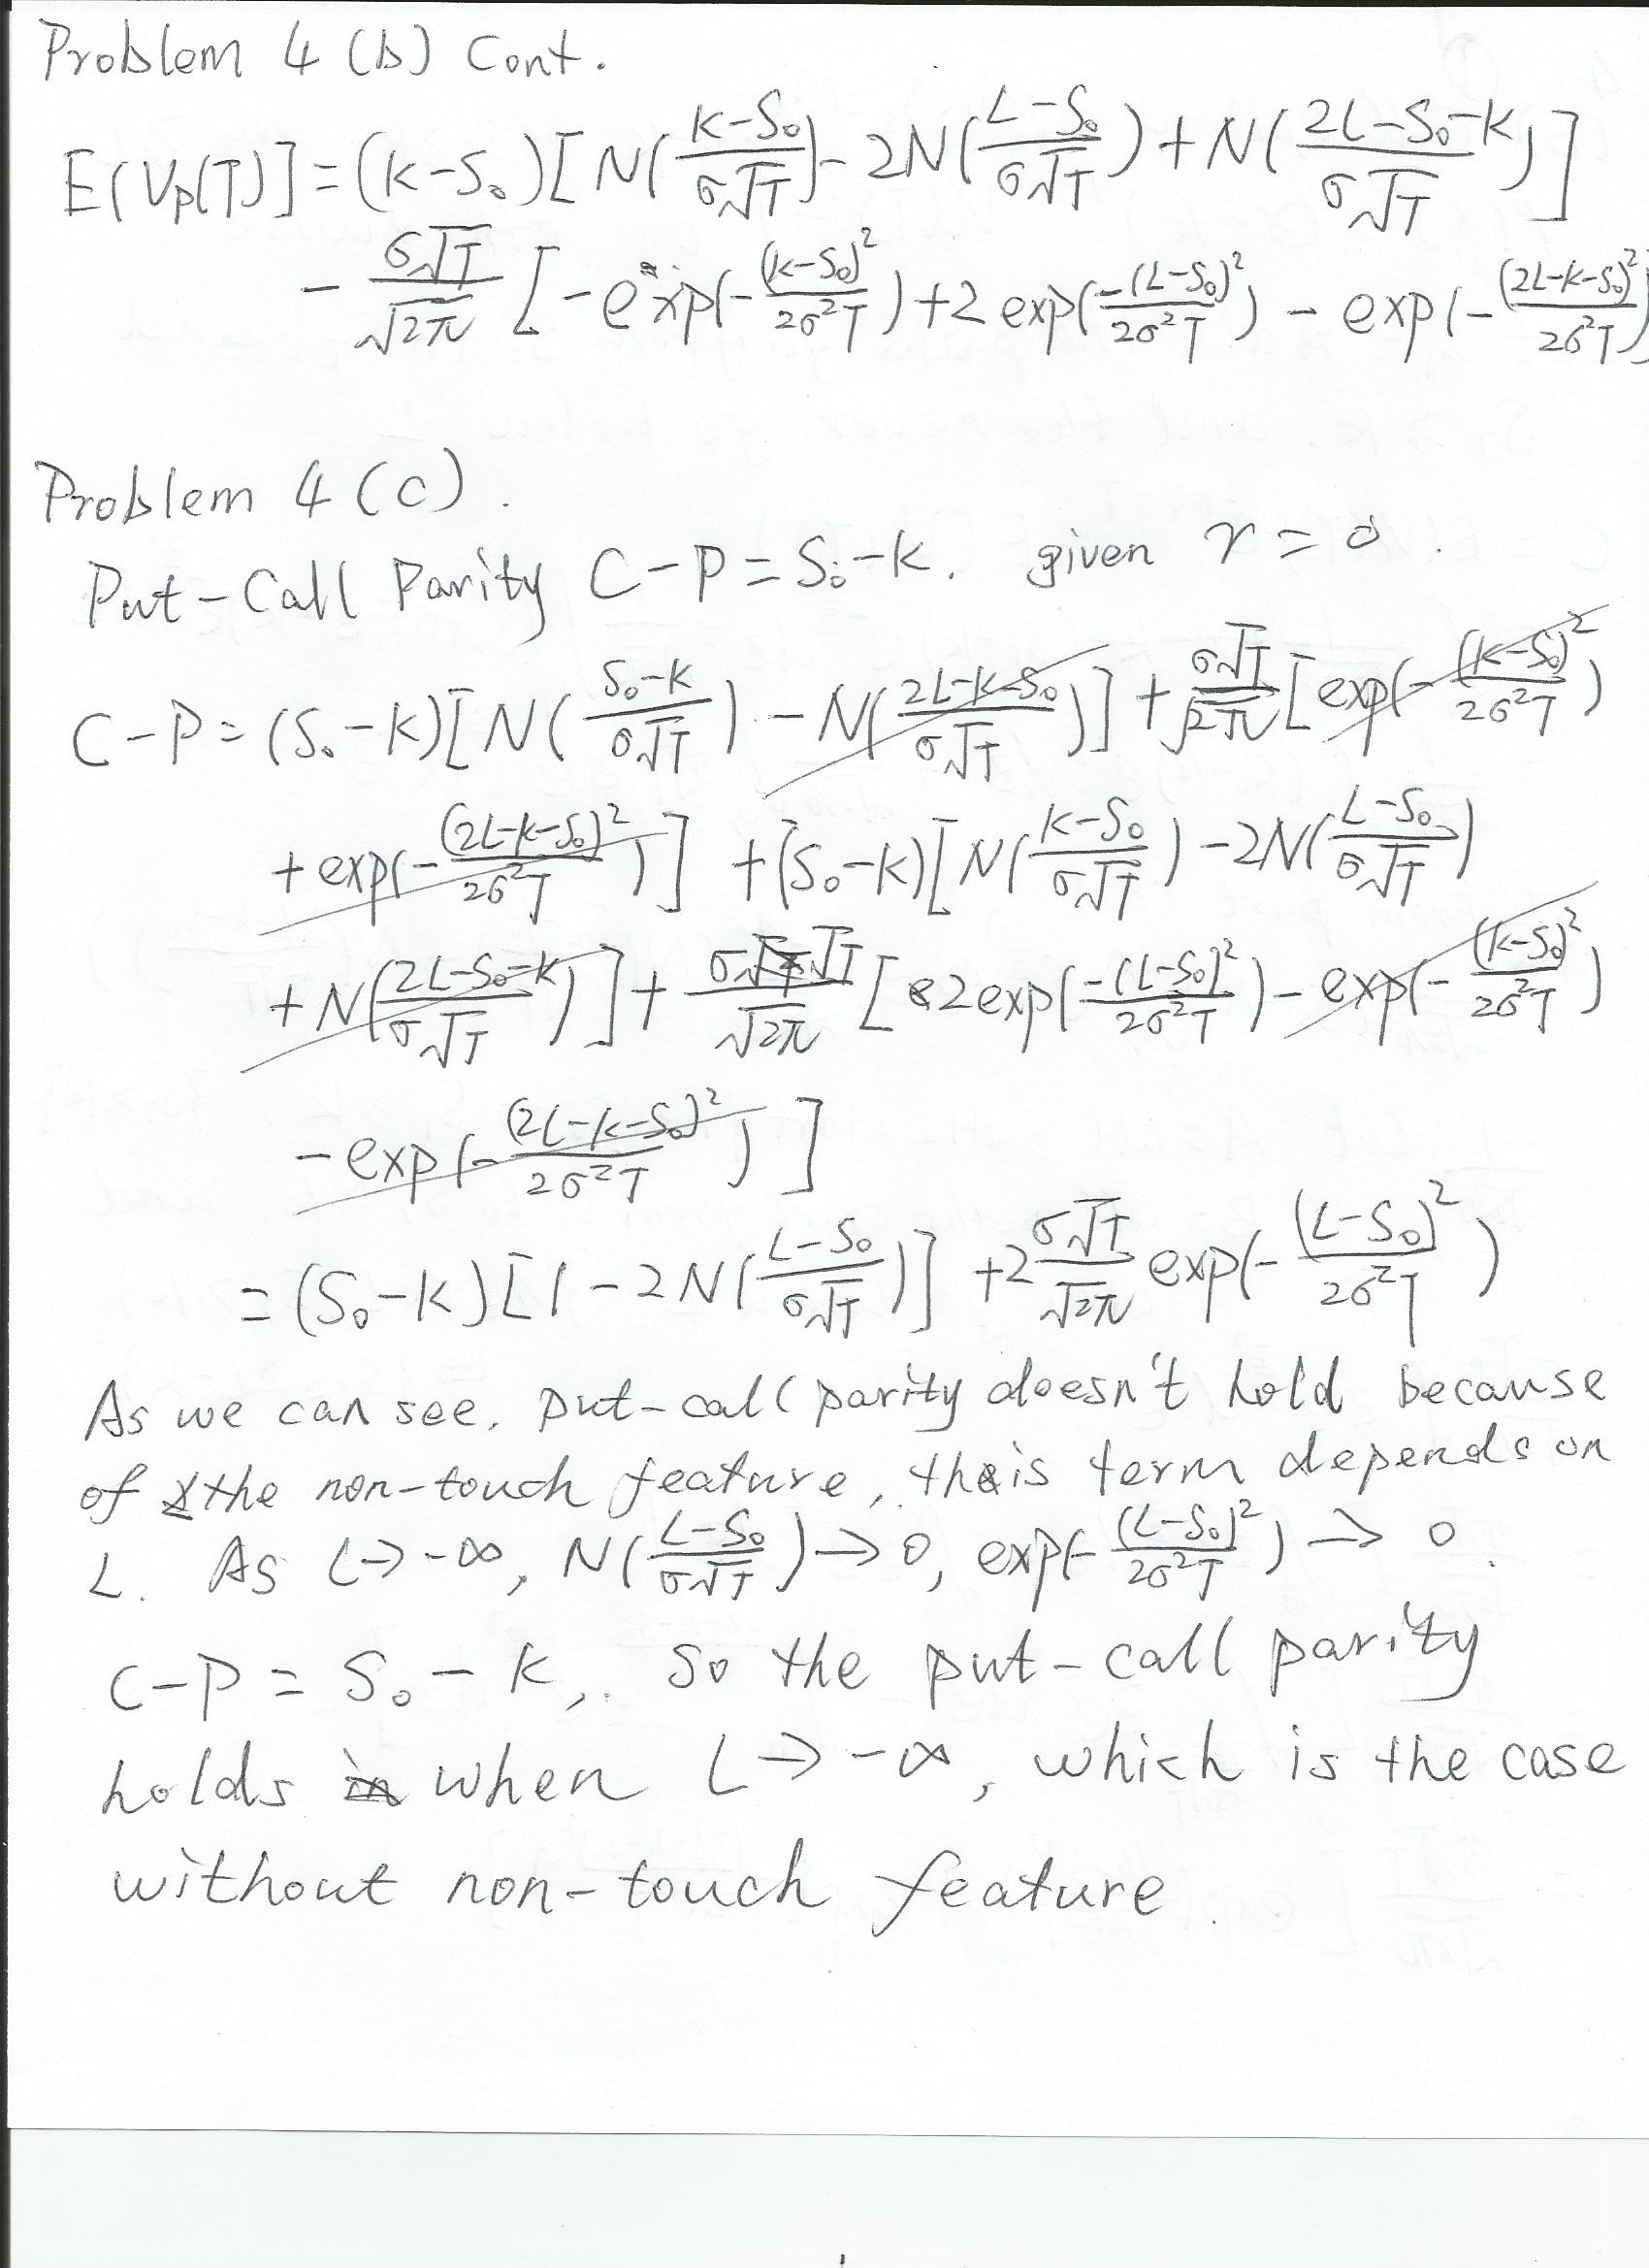 Problem 4 (b) Cont.
E[V_P(T)] = (K-S₀)[N(\frac{K-S₀}{σ√T}) - 2N(\frac{L-S₀}{σ√T}) + N(\frac{2L-S₀-K}{σ√T})]
- \frac{σ√T}{√2π} [-exp(-\frac{(K-S₀)²}{2σ²T}) + 2 exp(\frac{-(L-S₀)²}{2σ²T}) - exp(-\frac{(2L-K-S₀)²}{2σ²T})]
Problem 4 (c).
Put-Call Parity C-P = S₀-K. given r = 0.
C-P = (S₀-K)[N(\frac{S₀-K}{σ√T}) - N(\frac{2L-K-S₀}{σ√T})] + \frac{σ√T}{√2π} [exp(-\frac{(K-S₀)²}{2σ²T})
+ exp(-\frac{(2L-K-S₀)²}{2σ²T})] + (S₀-K)[N(\frac{K-S₀}{σ√T}) - 2N(\frac{L-S₀}{σ√T})
+ N(\frac{2L-S₀-K}{σ√T})] + \frac{σ√T}{√2π} [2exp(\frac{-(L-S₀)²}{2σ²T}) - exp(-\frac{(K-S₀)²}{2σ²T})
- exp(-\frac{(2L-K-S₀)²}{2σ²T})]
= (S₀-K)[1 - 2N(\frac{L-S₀}{σ√T})] + 2\frac{σ√T}{√2π} exp(-\frac{(L-S₀)²}{2σ²T})
As we can see, put-call parity doesn't hold because
of the non-touch feature, this term depends on
L. As L → -∞, N(\frac{L-S₀}{σ√T}) → 0, exp(-\frac{(L-S₀)²}{2σ²T}) → 0.
C-P = S₀ - K, so the put-call parity
holds when L → -∞, which is the case
without non-touch feature.